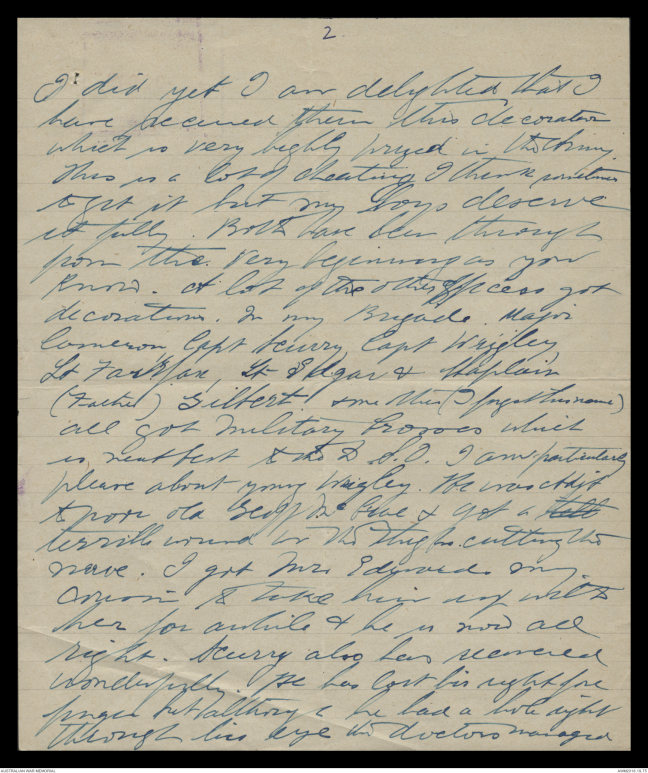 2.
I did yet I am delighted that I
have secured them this decoration
which is very highly prized in the Army.
This is a lot of cheating I think sometimes
to get it but my boys deserve
it fully. Both have been through
from the very beginning as you
know. A lot of the other Officers got
decorations. In my Brigade. Major
Cameron, Capt Scurry Capt Wrigley
Lt Fairfax, Lt Edgar & Chaplain
(Father) Gilbert. & one other (I forget his name)
all got Military Crosses which
is next best to the D.S.O. I am particularly
please about young Wrigley. He was Adjt
to poor old Geoff McCrae & got a
terrible wound in the thigh cutting the
nerve. I got Mrs Edwards my
cousin to take him up with
her for awhile & he is now all
right. Scurry also has recovered
wonderfully. He has lost his right fore
finger but although he had a hole right
through his eye the doctors managed
AUSTRALIAN WAR MEMORIAL